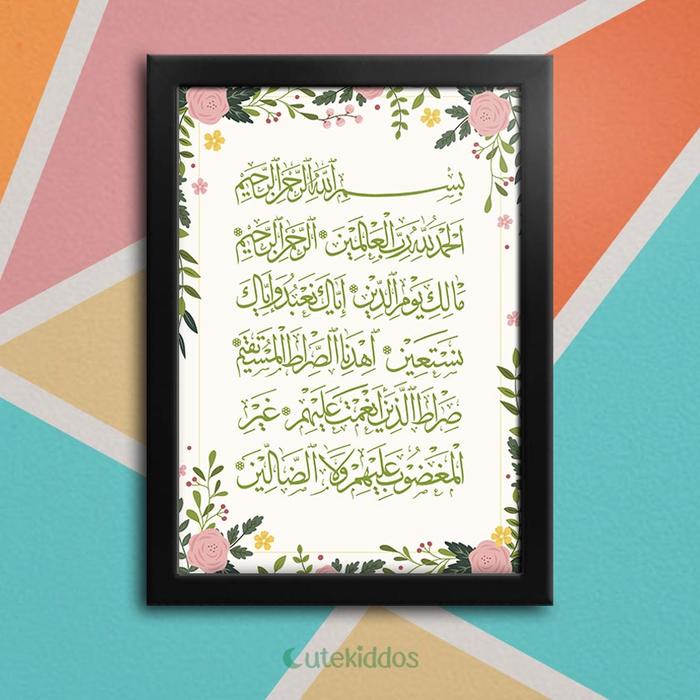 بِسْمِ اللَّهِ الرَّحْمَٰنِ الرَّحِيمِ
الْحَمْدُ لِلَّهِ رَبِّ الْعَالَمِينَ * الرَّحْمَٰنِ الرَّحِيمِ *
مَالِكِ يَوْمِ الدِّينِ * إِيَّاكَ نَعْبُدُ وَإِيَّاكَ
نَسْتَعِينُ * اهْدِنَا الصِّرَاطَ الْمُسْتَقِيمَ *
صِرَاطَ الَّذِينَ أَنْعَمْتَ عَلَيْهِمْ * غَيْرِ
الْمَغْضُوبِ عَلَيْهِمْ وَلَا الضَّالِّينَ *
Cutekiddos